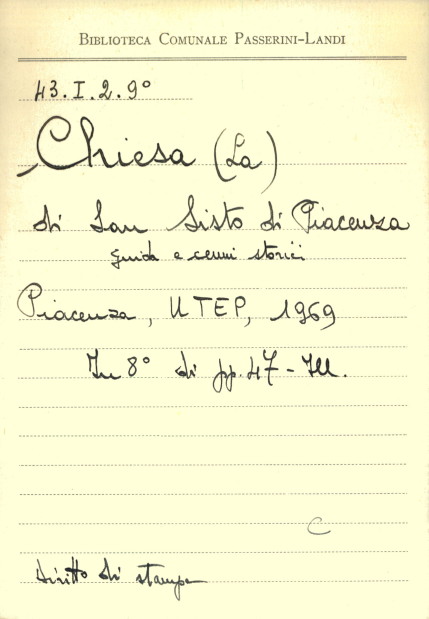 BIBLIOTECA COMUNALE PASSERINI-LANDI
43.I.2.9°
Chiesa (La)
di San Sisto di Piacenza
guida e cenni storici
Piacenza, UTEP, 1969
In 8° di pp. 47 - Ill.
C
diritto di stampa